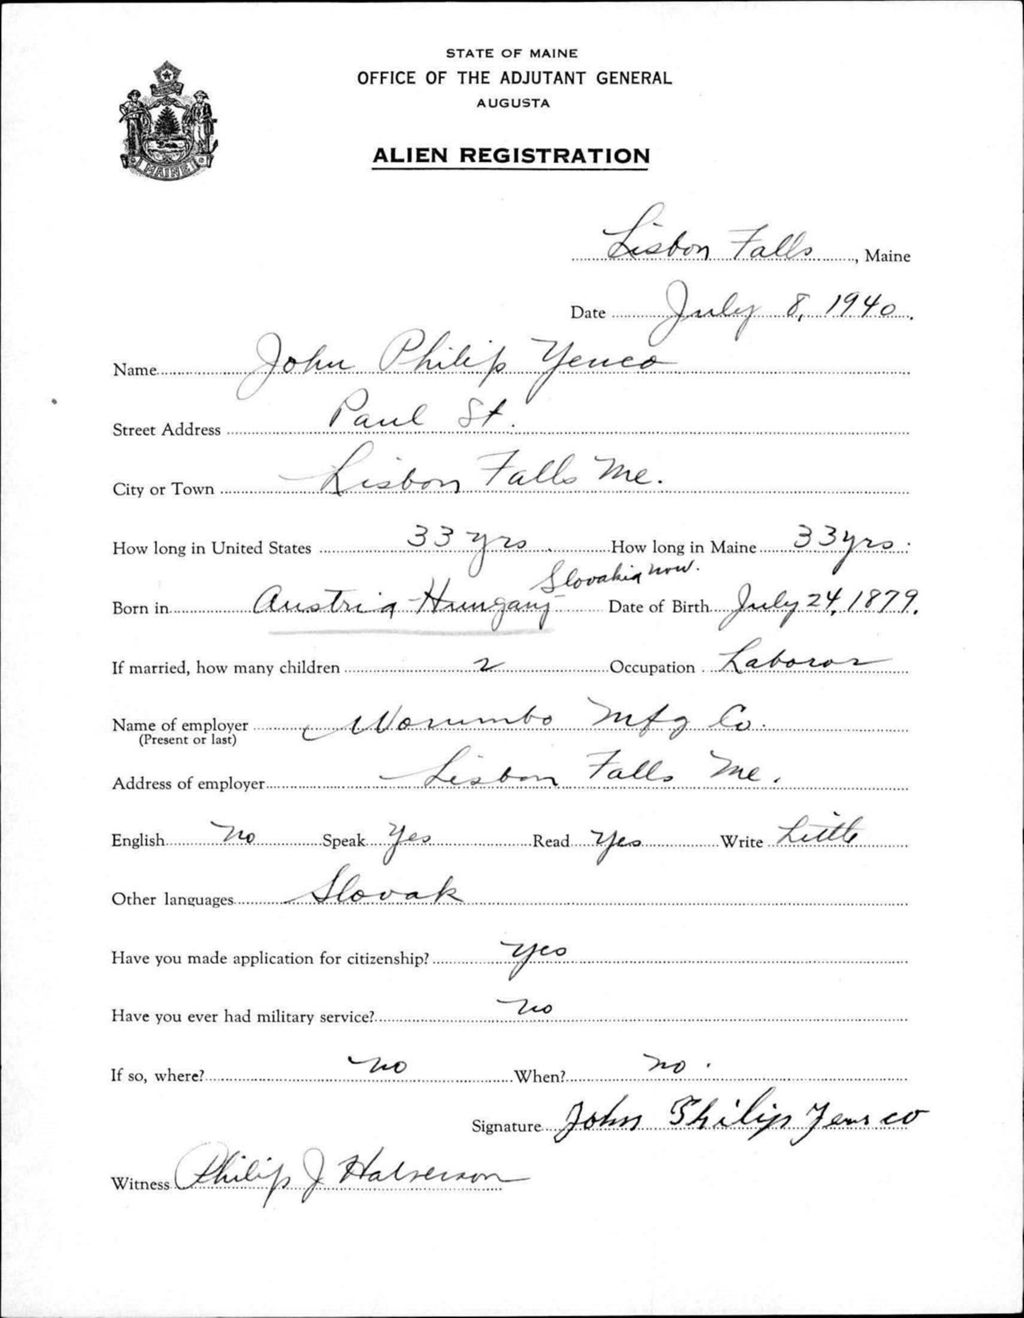 STATE OF MAINE
OFFICE OF THE ADJUTANT GENERAL
AUGUSTA
ALIEN REGISTRATION
MAINE
Lisbon Falls, Maine
Date July 8, 1940.
Name John Philip Yenco
Street Address Paul St.
City or Town Lisbon Falls Me.
How long in United States 33 yrs. How long in Maine 33 yrs.
Slovakia now.
Born in Austria Hungary Date of Birth July 24, 1879.
If married, how many children 2 Occupation Laboror
Name of employer Worumbo Mfg Co.
(Present or last)
Address of employer Lisbon Falls Me.
English No Speak Yes Read Yes Write Little
Other languages Slovak
Have you made application for citizenship? Yes
Have you ever had military service? No
If so, where? No When? No.
Signature John Philip Yenco
Witness Philip J Halverson